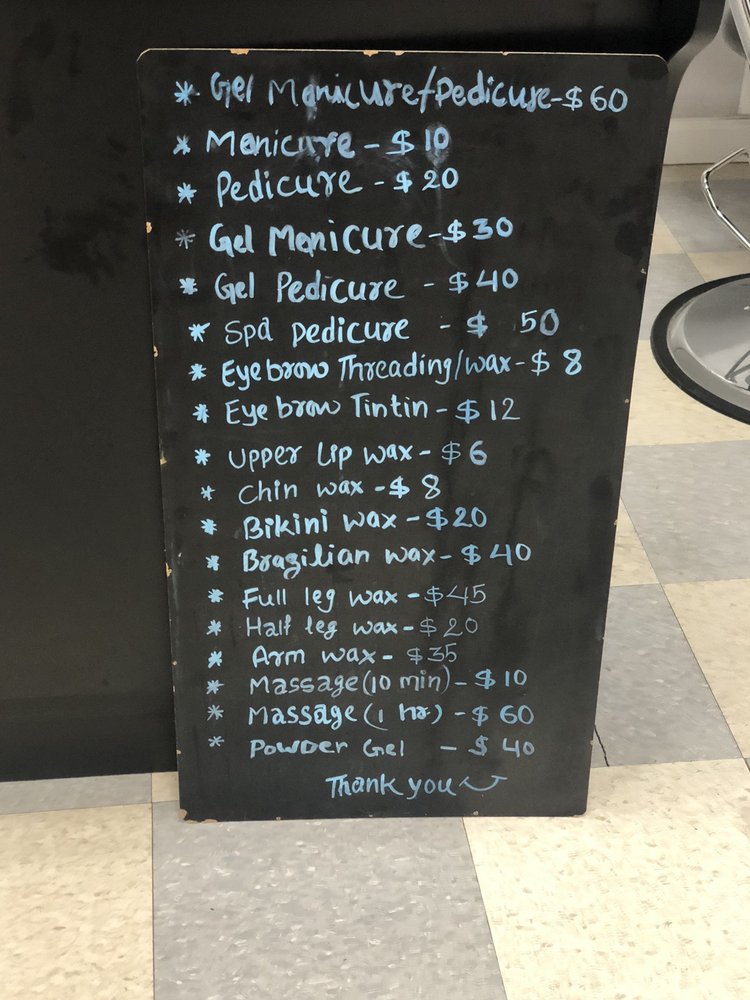 * Gel Manicure/Pedicure-$60
* Manicure - $10
* Pedicure - $20
* Gel Manicure-$30
* Gel Pedicure - $40
* Spa pedicure - $ 50
* Eyebrow Threading/wax-$ 8
* Eyebrow Tintin-$12
* Upper Lip wax- $6
* Chin wax-$ 8
* Bikini wax-$20
* Brazilian wax-$40
* Full leg wax-$45
* Half leg wax-$20
* Arm wax- $35
* Massage(10 min)-$10
* Massage(1 hr)-$60
* Powder Gel - $ 40
Thank you